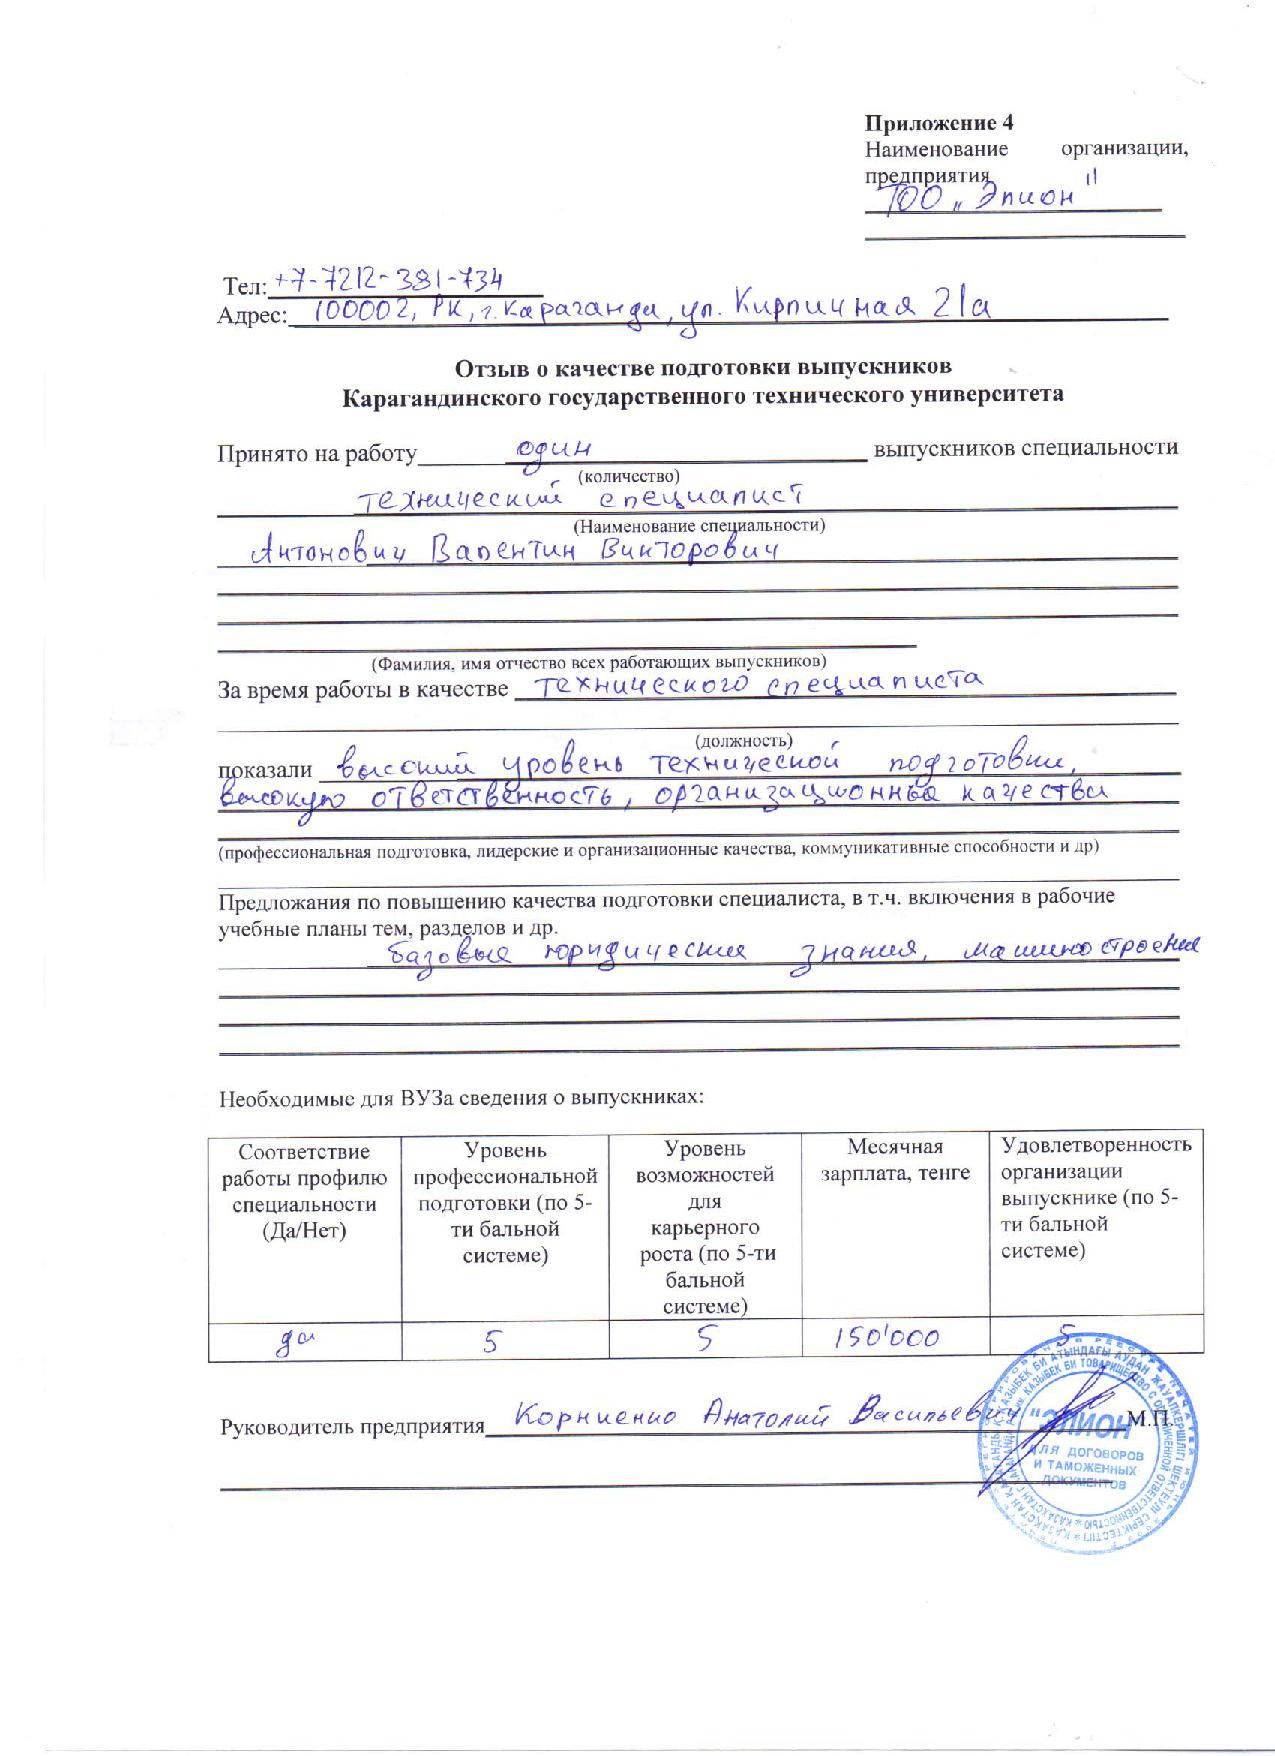 Приложение 4
Наименование организации,
предприятия
ТОО „Элион"
Тел: +7-7212-381-734
Адрес: 100002, РК, г. Караганда, ул. Кирпичная 21а
Отзыв о качестве подготовки выпускников
Карагандинского государственного технического университета
Принято на работу один выпускников специальности
(количество)
технический специалист
(Наименование специальности)
Антонович Валентин Викторович
(Фамилия, имя отчество всех работающих выпускников)
За время работы в качестве технического специалиста
(должность)
показали высокий уровень технической подготовки,
высокую ответственность, организационные качества
(профессиональная подготовка, лидерские и организационные качества, коммуникативные способности и др)
Предложания по повышению качества подготовки специалиста, в т.ч. включения в рабочие
учебные планы тем, разделов и др.
базовые юридические знания, машиностроение
Необходимые для ВУЗа сведения о выпускниках:
Соответствие работы профилю специальности (Да/Нет)
Уровень профессиональной подготовки (по 5-ти бальной системе)
Уровень возможностей для карьерного роста (по 5-ти бальной системе)
Месячная зарплата, тенге
Удовлетворенность организации выпускнике (по 5-ти бальной системе)
да 5 5 150'000 5
Руководитель предприятия Корниенко Анатолий Васильевич М.П.
"ЭЛИОН
ДЛЯ ДОГОВОРОВ
И ТАМОЖЕННЫХ
ДОКУМЕНТОВ